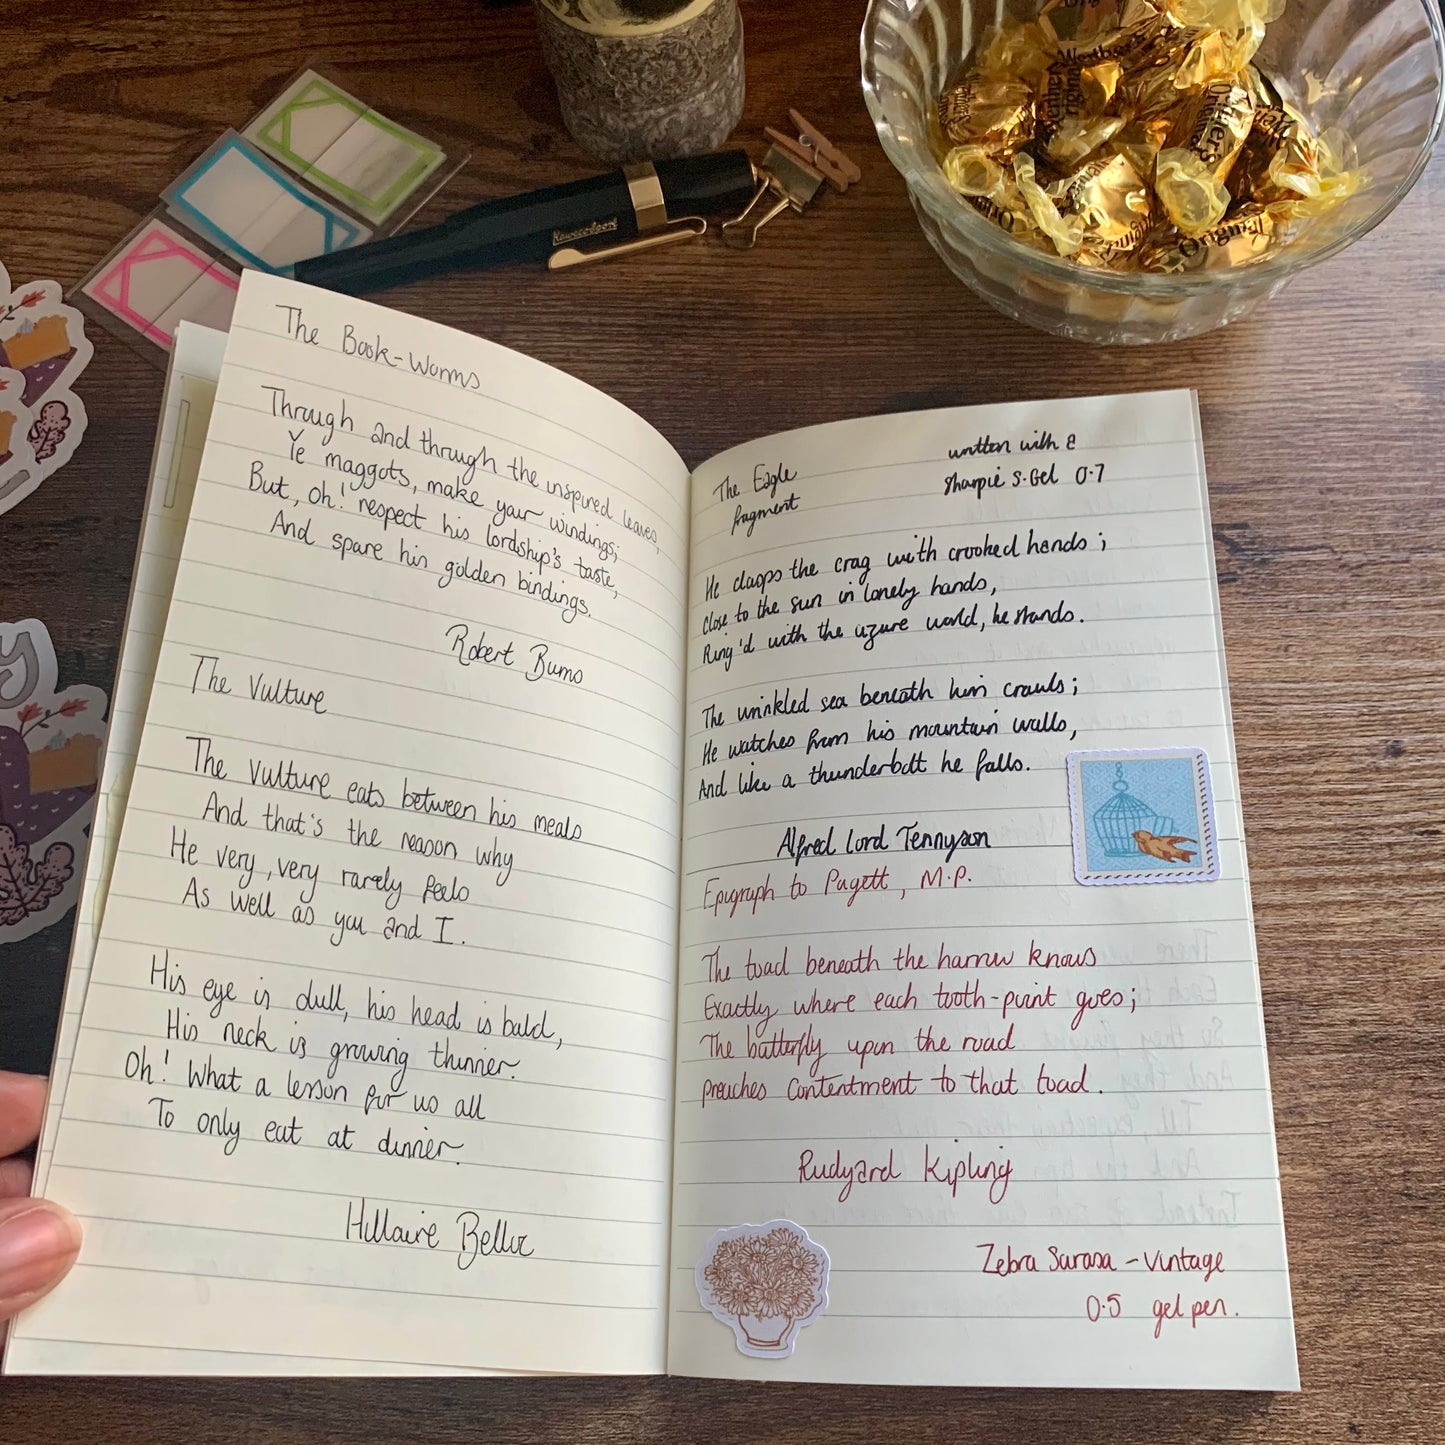 The Book-Worms
Through and through the inspired leaves,
Ye maggots, make your windings;
But, oh! respect his lordship's taste,
And spare his golden bindings.
Robert Burns
The Vulture
The Vulture eats between his meals
And that's the reason why
He very, very rarely feels
As well as you and I.
His eye is dull, his head is bald,
His neck is growing thinner.
Oh! What a lesson for us all
To only eat at dinner.
Hillaire Belloc
The Eagle
fragment
written with a
Sharpie S.Gel 0.7
He clasps the crag with crooked hands;
Close to the sun in lonely hands,
Ring'd with the azure world, he stands.
The wrinkled sea beneath him crawls;
He watches from his mountain walls,
And like a thunderbolt he falls.
Alfred Lord Tennyson
Epigraph to Pagett, M.P.
The toad beneath the harrow knows
Exactly where each tooth-point goes;
The butterfly upon the road
preaches contentment to that toad.
Rudyard Kipling
Zebra Sarasa - Vintage
0.5 gel pen.
Kaweco Sport
Werther's
Original